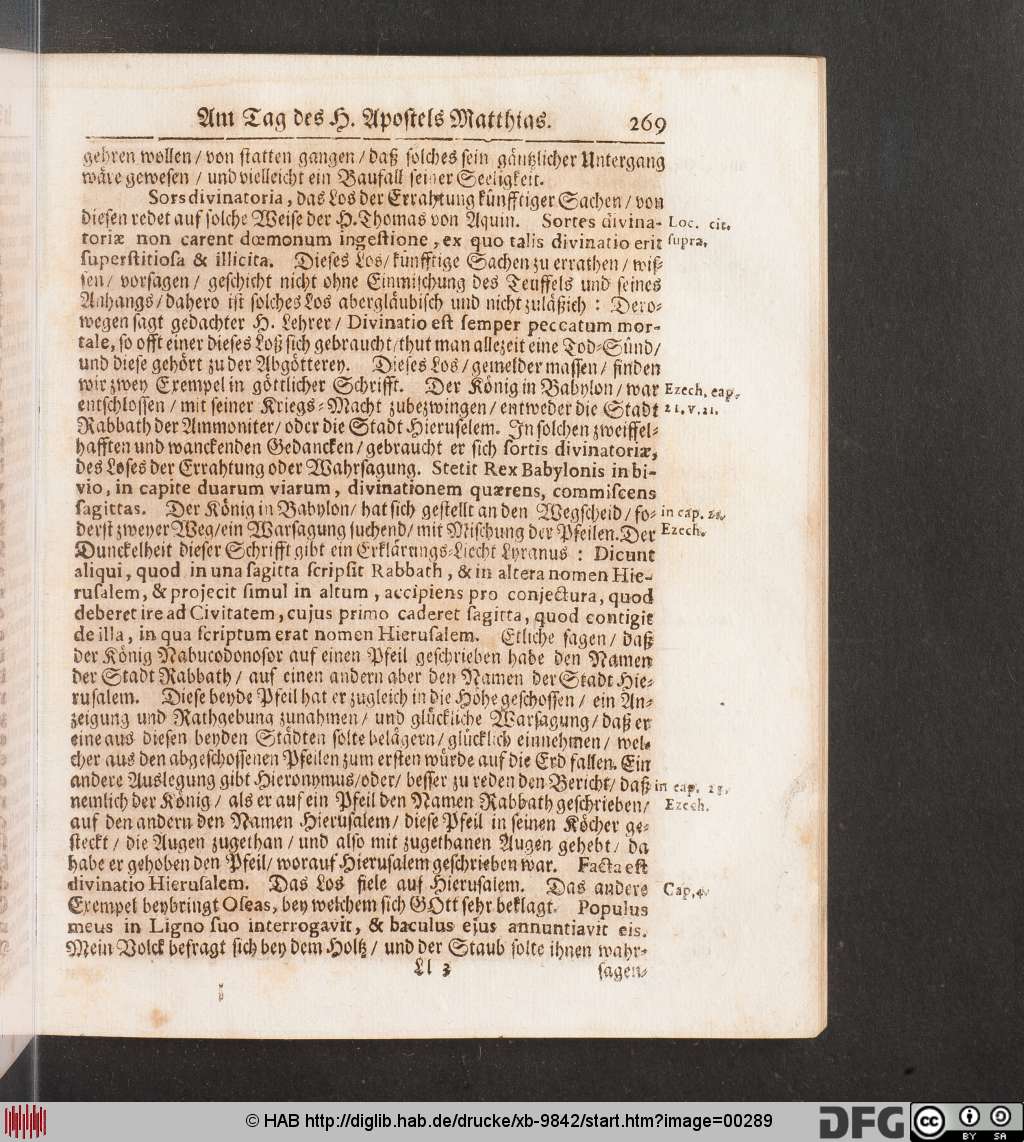 Am Tag des H. Apostels Matthias. 269
gehren wollen / von statten gangen / daß solches sein gäntzlicher Untergang
wäre gewesen / und vielleicht ein Baufall seiner Seeligkeit.
Sors divinatoria, das Los der Errahtung künfftiger Sachen / von
diesen redet auf solche Weise der H. Thomas von Aquin. Sortes divina- Loc. cit.
toriæ non carent dœmonum ingestione, ex quo talis divinatio erit supra.
superstitiosa & illicita. Dieses Los / künfftige Sachen zu errathen / wis-
sen / vorsagen / geschicht nicht ohne Einmischung des Teuffels und seines
Anhangs / dahero ist solches Los abergläubisch und nicht zuläßich : Dero-
wegen sagt gedachter H. Lehrer / Divinatio est semper peccatum mor-
tale, so offt einer dieses Loß sich gebraucht / thut man allezeit eine Tod-Sünd /
und diese gehört zu der Abgötterey. Dieses Los / gemelder massen / finden
wir zwey Exempel in göttlicher Schrifft. Der König in Babylon / war Ezech. cap.
entschlossen / mit seiner Kriegs-Macht zubezwingen / entweder die Stadt 21. v. 21.
Rabbath der Ammoniter / oder die Stadt Hieruselem. In solchen zweiffel-
hafften und wanckenden Gedancken / gebraucht er sich sortis divinatoriæ,
des Loses der Errahtung oder Wahrsagung. Stetit Rex Babylonis in bi-
vio, in capite duarum viarum, divinationem quærens, commiscens
sagittas. Der König in Babylon / hat sich gestellt an den Wegscheid / fo- in cap.
derst zweyer Weg / ein Warsagung suchend / mit Mischung der Pfeilen. Der Ezech.
Dunckelheit dieser Schrifft gibt ein Erklärungs-Liecht Lyranus : Dicunt
aliqui, quod in una sagitta scripsit Rabbath, & in altera nomen Hie-
rusalem, & projecit simul in altum, accipiens pro conjectura, quod
deberet ire ad Civitatem, cujus primo caderet sagitta, quod contigit
de illa, in qua scriptum erat nomen Hierusalem. Etliche sagen / daß
der König Nabucodonosor auf einen Pfeil geschrieben habe den Namen
der Stadt Rabbath / auf einen andern aber den Namen der Stadt Hie-
rusalem. Diese beyde Pfeil hat er zugleich in die Höhe geschossen / ein An-
zeigung und Rathgebung zunahmen / und glückliche Warsagung / daß er
eine aus diesen beyden Städten solte belägern / glücklich einnehmen / wel-
cher aus den abgeschossenen Pfeilen zum ersten würde auf die Erd fallen. Ein
andere Auslegung gibt Hieronymus / oder / besser zu reden den Bericht / daß in cap.
nemlich der König / als er auf ein Pfeil den Namen Rabbath geschrieben / Ezech.
auf den andern den Namen Hierusalem / diese Pfeil in seinen Köcher ge-
steckt / die Augen zugethan / und also mit zugethanen Augen gehebt / da
habe er gehoben den Pfeil / worauf Hierusalem geschrieben war. Facta est
divinatio Hierusalem. Das Los fiele auf Hierusalem. Das andere Cap. 4.
Exempel beybringt Oseas, bey welchem sich GOtt sehr beklagt. Populus
meus in Ligno suo interrogavit, & baculus ejus annuntiavit eis.
Mein Volck befragt sich bey dem Holtz / und der Staub solte ihnen wahr-
Ll 3 sagen-
© HAB http://diglib.hab.de/drucke/xb-9842/start.htm?image=00289
DFG cc BY SA